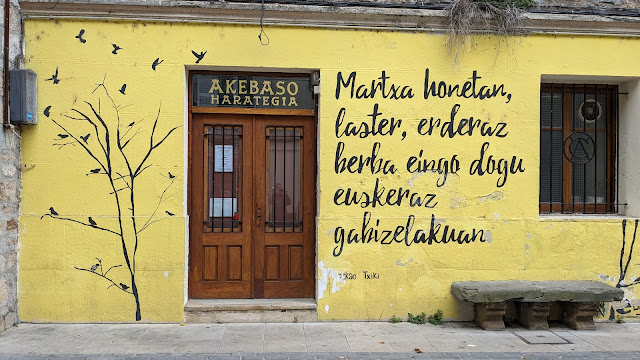 AKEBASO
HARATEGIA
Martxa honetan,
laster, erderaz
berba eingo dogu
euskeraz
gabizelakuan
Txiki